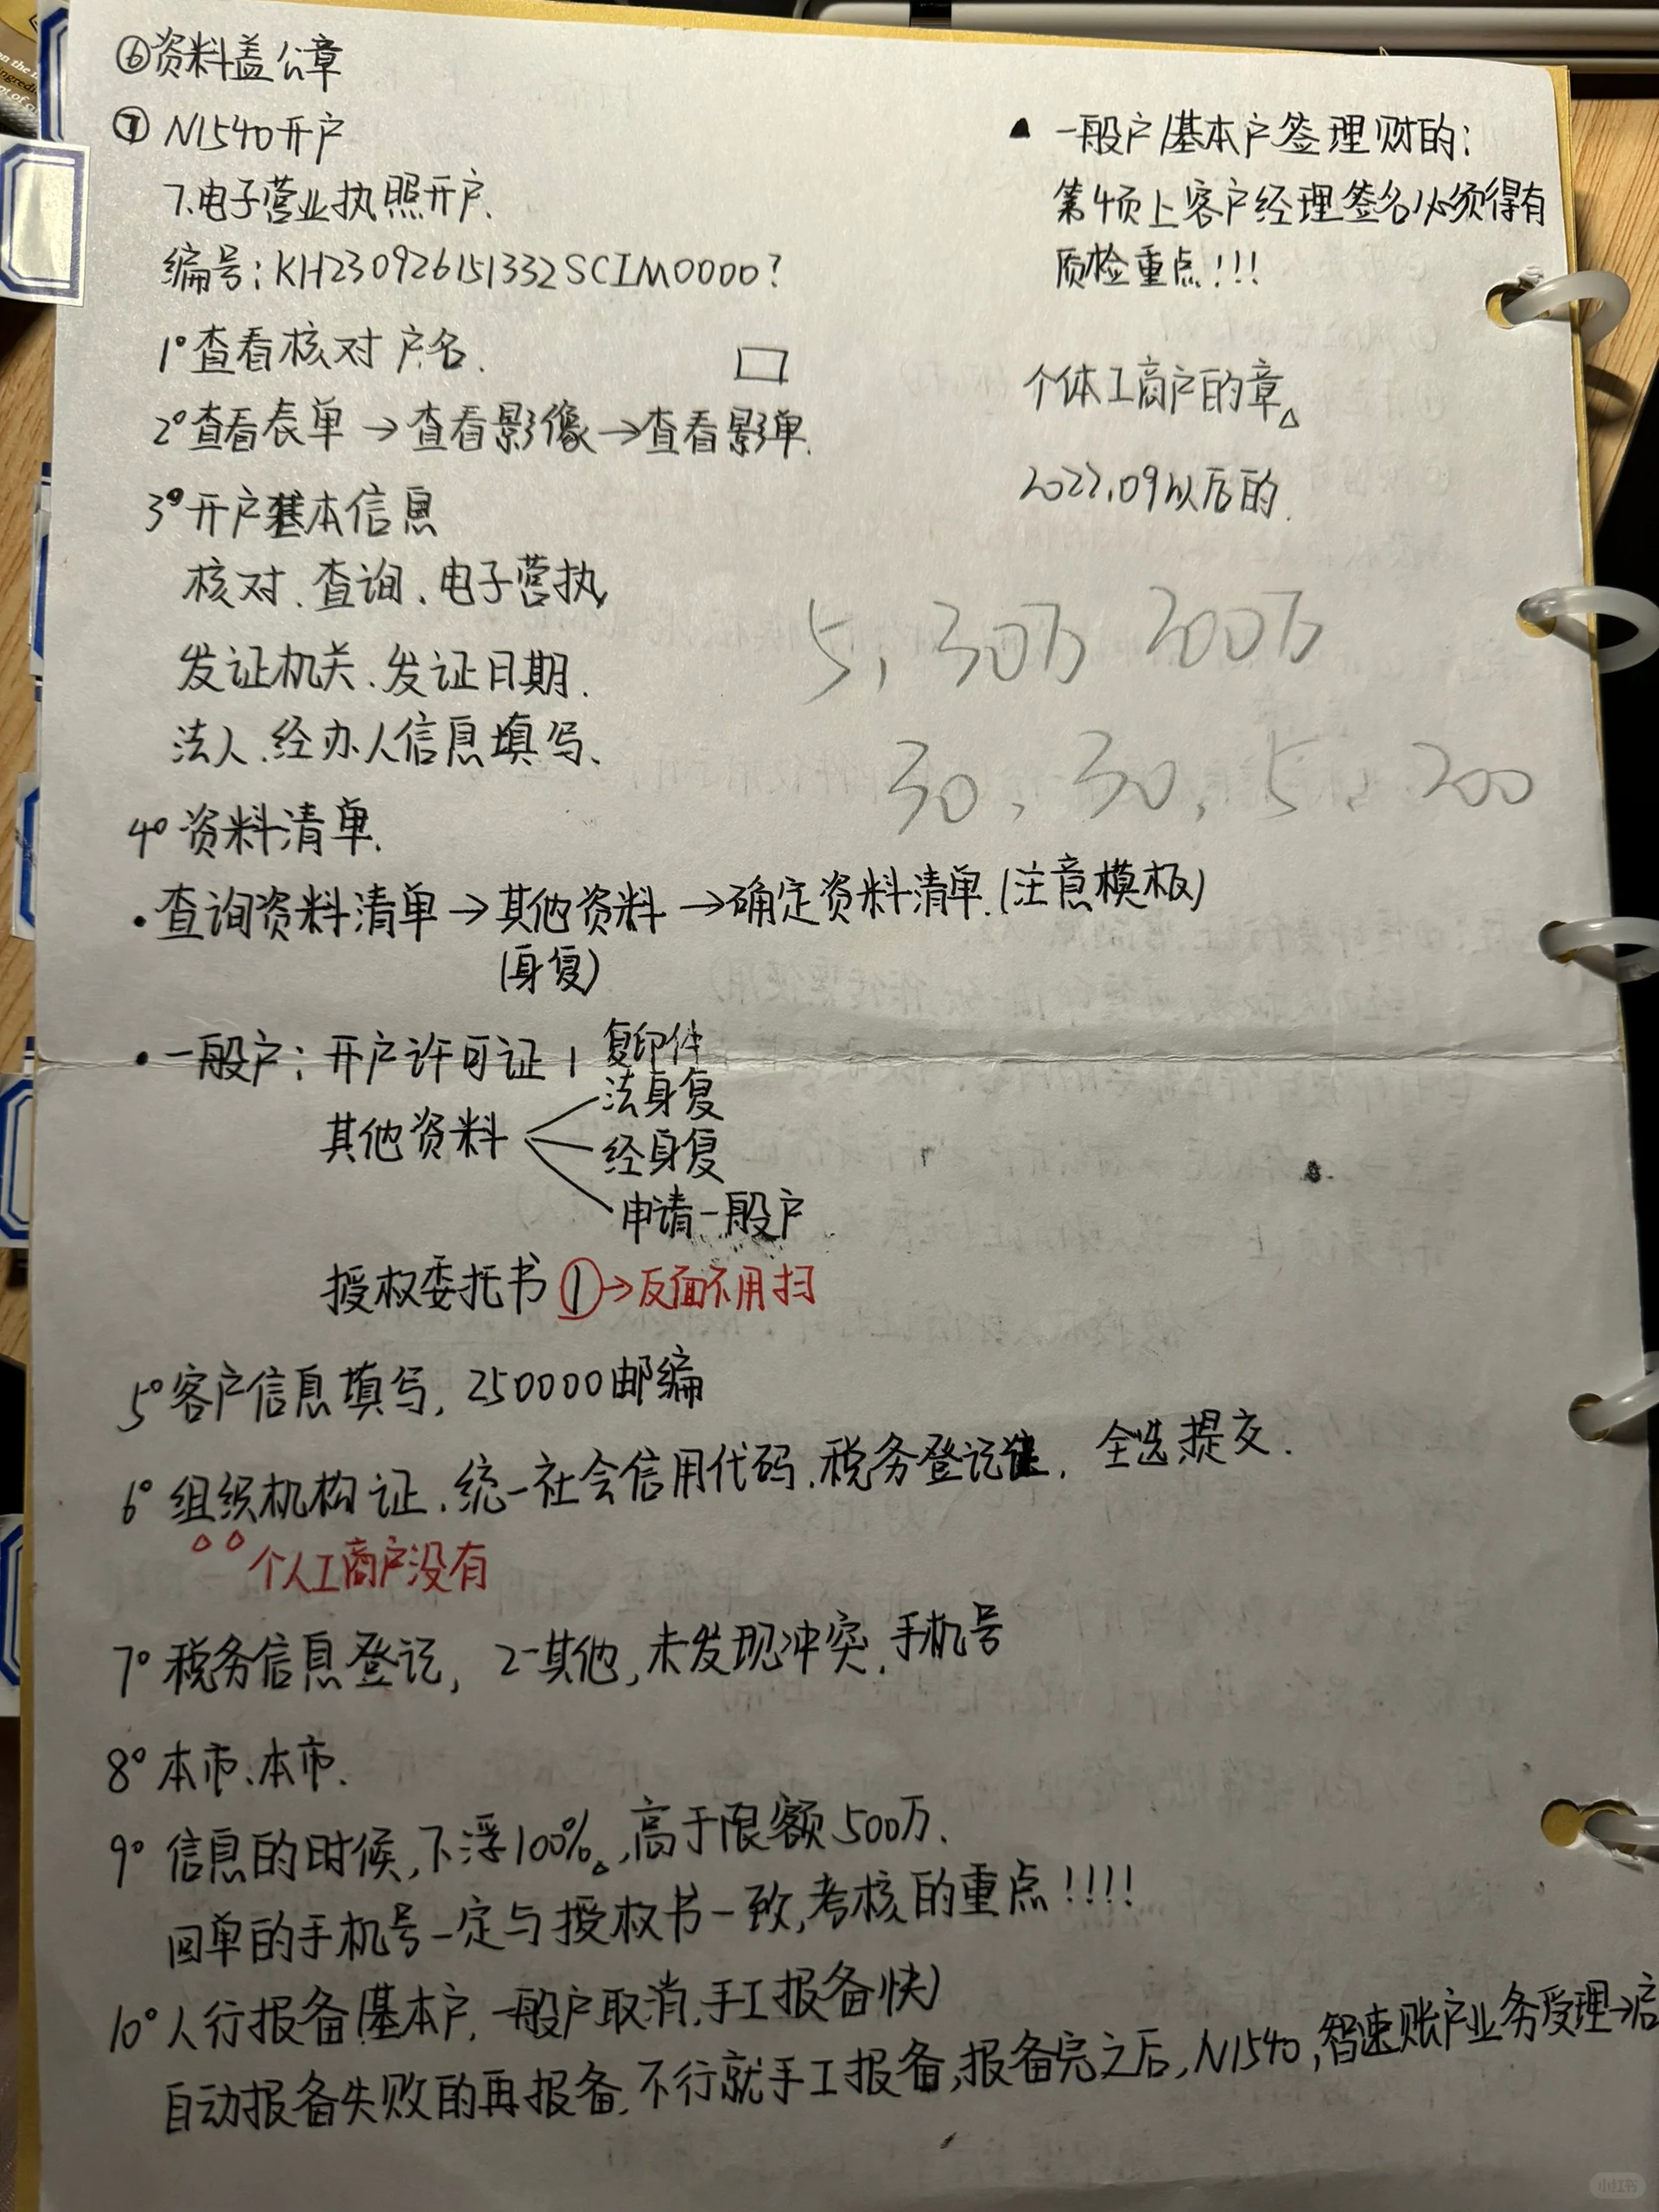 ⑥资料盖公章
⑦ N1540开户
7.电子营业执照开户.
编号:KH230926151332SCIM0000?
1°查看核对户名.
2°查看表单→查看影像→查看影单.
3°开户基本信息
核对、查询、电子营执
发证机关、发证日期.
法人、经办人信息填写、
4°资料清单.
•查询资料清单→其他资料→确定资料清单.(注意模板)
(身复)
•一般户:开户许可证1复印件
其他资料
法身复
经身复
申请一般户
授权委托书①→反面不用扫
5°客户信息填写,250000邮编
6°组织机构证、统一社会信用代码、税务登记证,全选,提交.
个人工商户没有
7°税务信息登记,2-其他,未发现冲突,手机号
8°本市、本市.
9°信息的时候,下浮100%。,高于限额500万.
回单的手机号一定与授权书一致,考核的重点!!!!
10°人行报备(基本户,一般户取消,手工报备快)
自动报备失败的再报备,不行就手工报备,报备完之后,N1540,智速账户业务受理→启
▲ 一般户/基本户签理财的:
第4页上客户经理签名必须得有
质检重点!!!
个体工商户的章。
2022.09以后的.
5,30万 200万
30,30,5,200